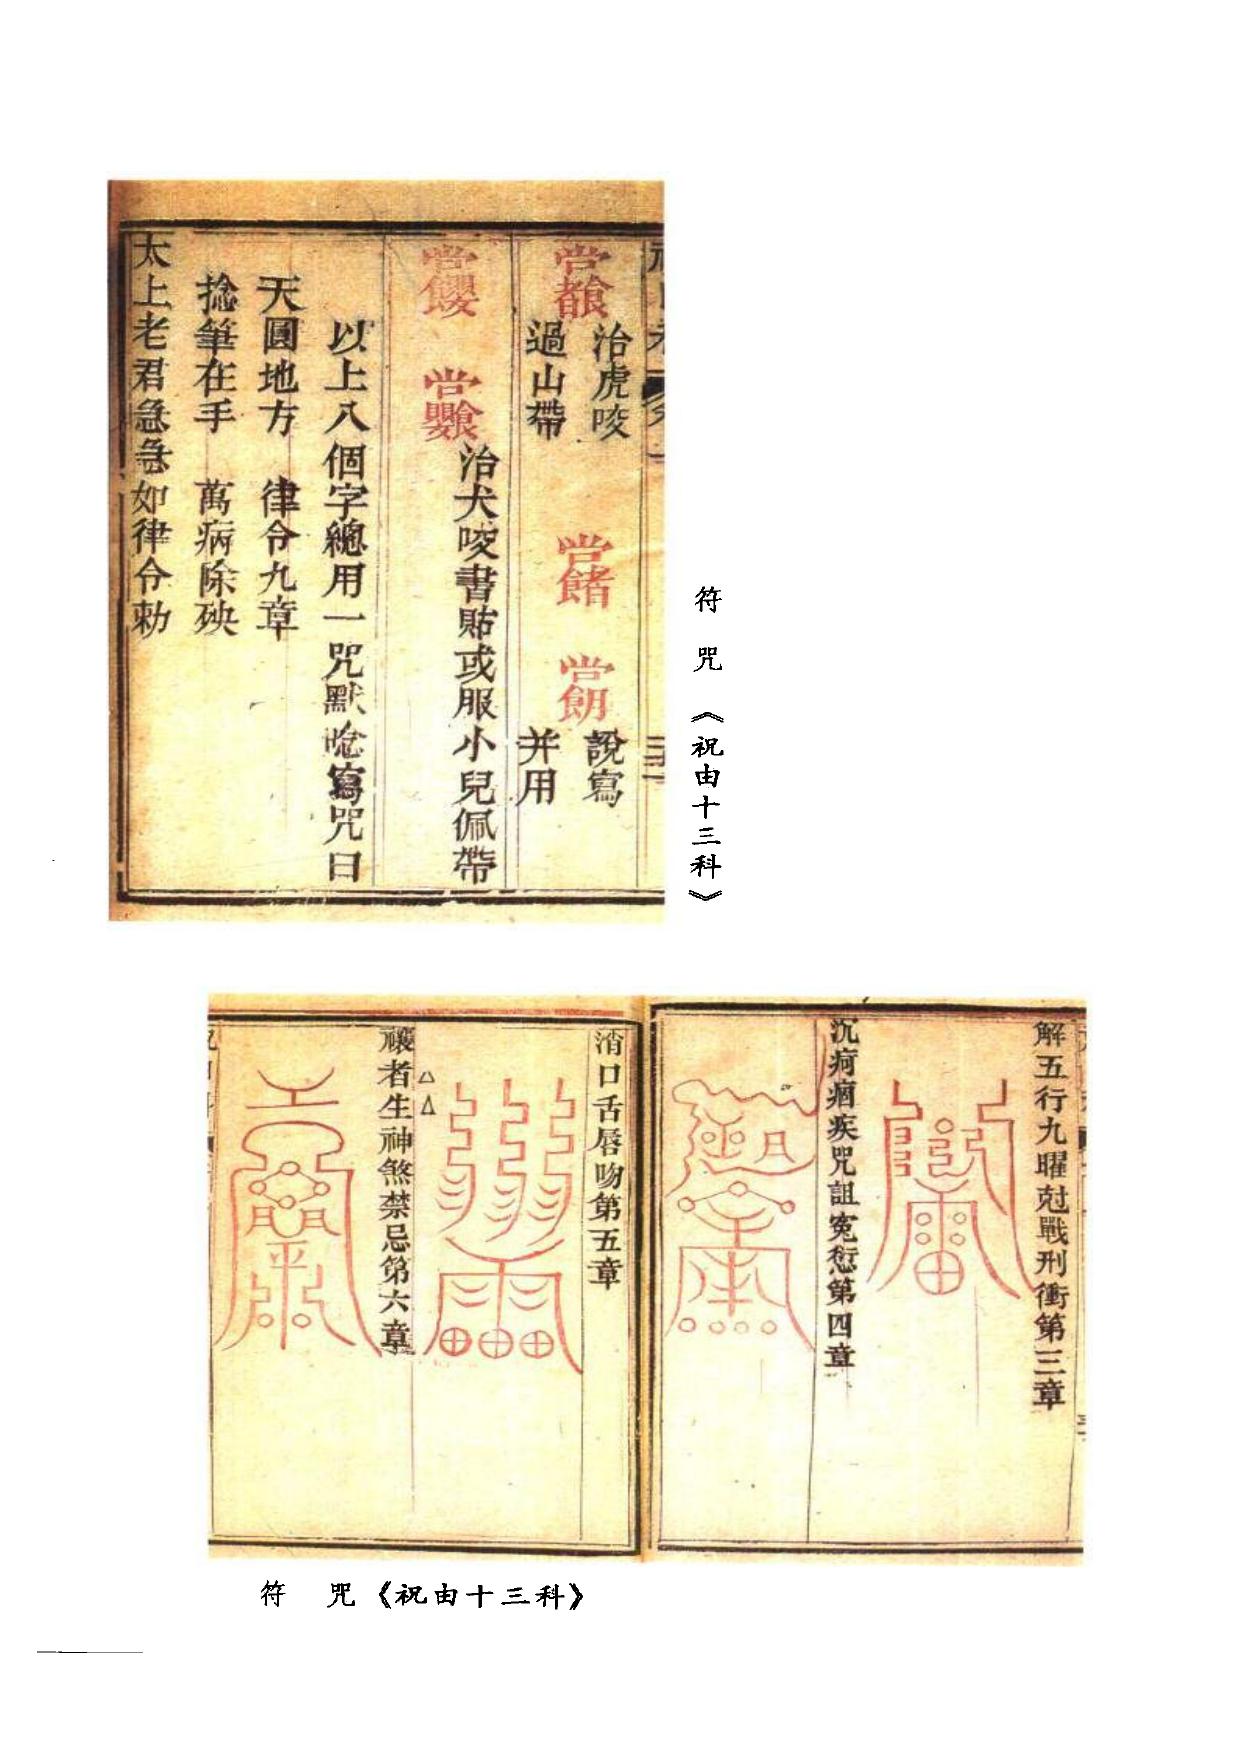 治虎咬
過山帶
說寫
并用
治犬咬書貼或服小兒佩帶
以上八個字總用一咒默唸寫咒曰
天圓地方 律令九章
捻筆在手 萬病除殃
太上老君急急如律令勅
符咒《祝由十三科》
解五行九曜尅戰刑衝第三章
沉疴痼疾咒詛冤愆第四章
消口舌唇吻第五章
禳者生神煞禁忌第六章
符 咒《祝由十三科》